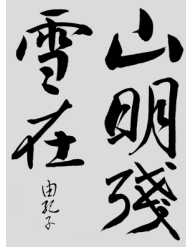 山明残
雪在
由紀子